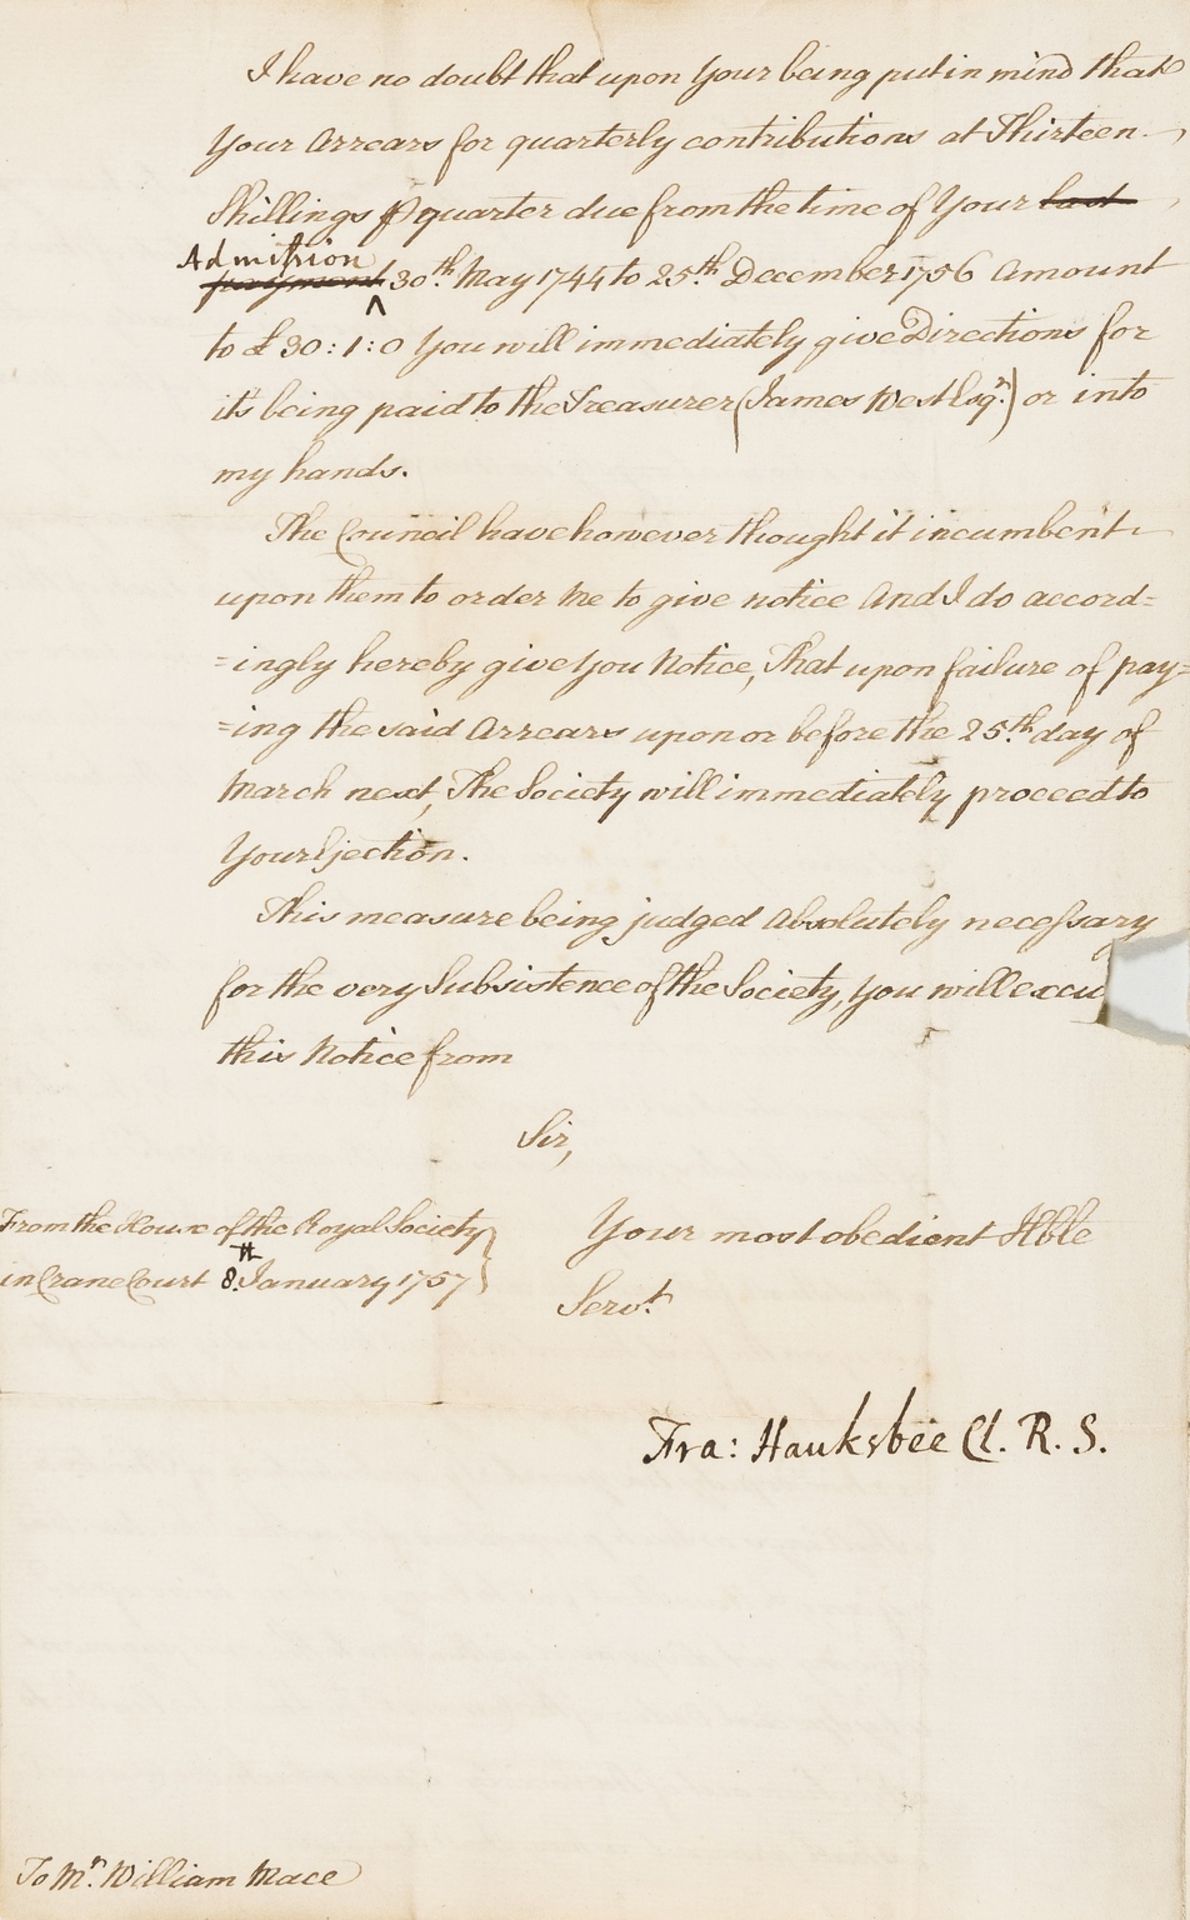 I have no doubt that upon Your being put in mind that
Your Arrears for quarterly contributions at Thirteen
Shillings ⅌ quarter due from the time of Your last
Admission
payment 30th. May 1744 to 25th. December 1756 Amount
to £ 30:1:0 You will immediately give Directions for
its being paid to the Treasurer (James West Esqr.) or into
my hands.
The Council have however thought it incumbent
upon them to order Me to give notice And I do accord=
=ingly hereby give You Notice, That upon failure of pay=
=ing the said Arrears upon or before the 25th. day of
March next, The Society will immediately proceed to
Your Ejection.
This measure being judged Absolutely necessary
for the very Subsistence of the Society, You will excu
this Notice from
Sir,
Your most obedient Hble
Servt.
From the House of the Royal Society
in Crane Court 8.th January 1757
Fra: Hauksbee Cl. R. S.
To Mr. William Mace